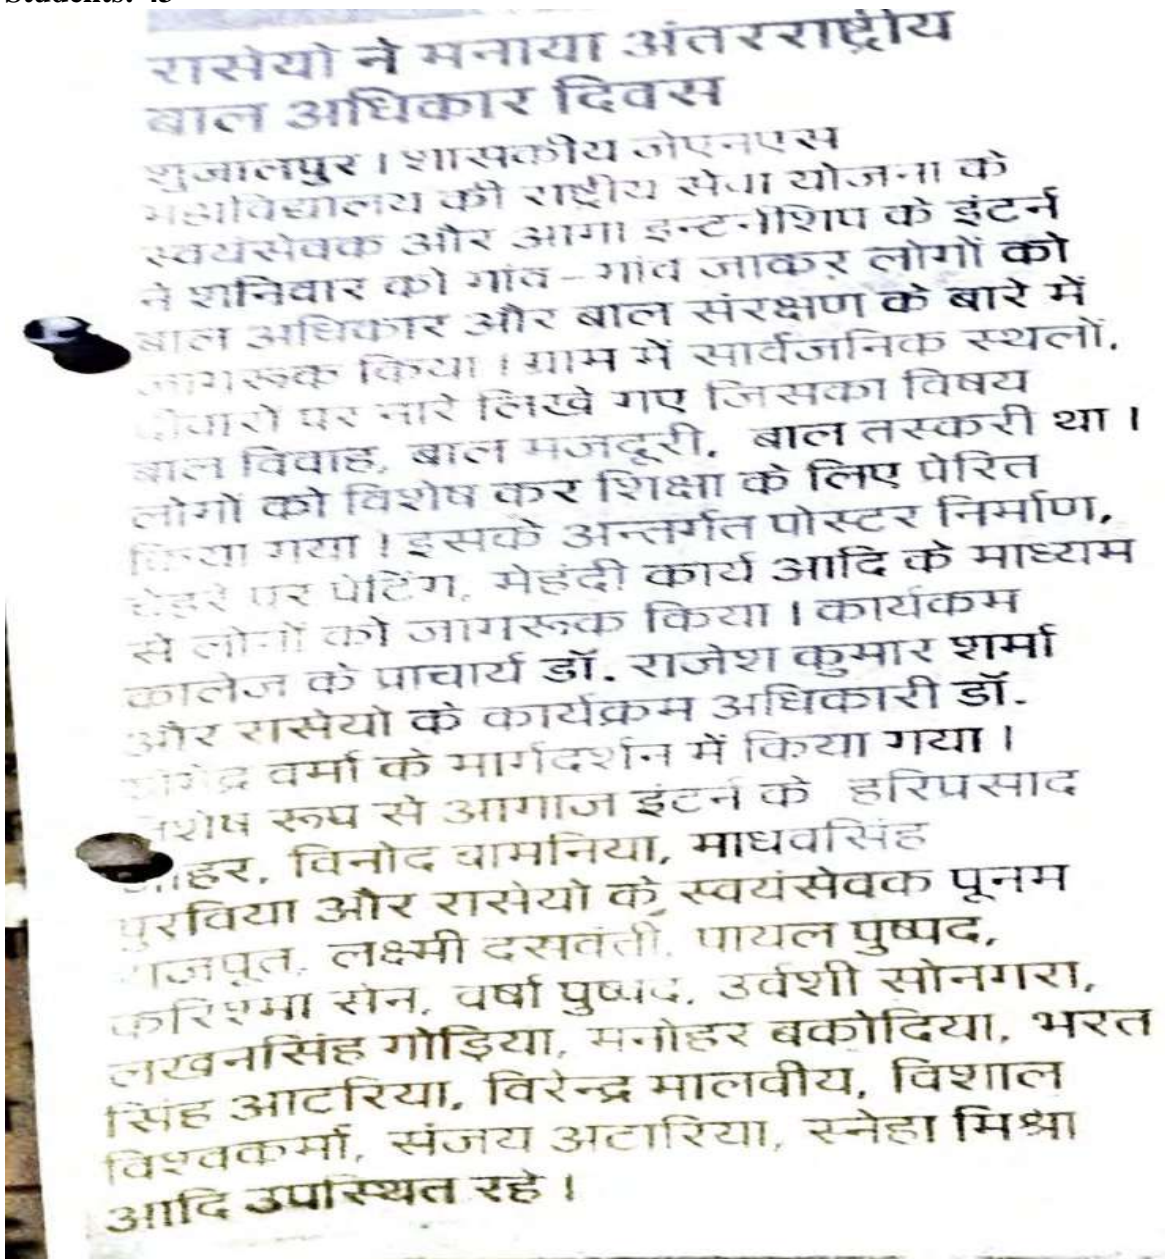 Students: 45
रासेयो ने मनाया अंतरराष्ट्रीय
बाल अधिकार दिवस
शुजालपुर । शासकीय जेएनएस
महाविद्यालय की राष्ट्रीय सेवा योजना के
स्वयंसेवक और आगा इन्टर्नशिप के इंटर्न
ने शनिवार को गांव-गांव जाकर लोगों को
बाल अधिकार और बाल संरक्षण के बारे में
जागरूक किया । ग्राम में सार्वजनिक स्थलों,
दीवारों पर नारे लिखे गए जिसका विषय
बाल विवाह, बाल मजदूरी, बाल तस्करी था ।
लोगों को विशेष कर शिक्षा के लिए प्रेरित
किया गया । इसके अन्तर्गत पोस्टर निर्माण,
चेहरे पर पेटिंग, मेहंदी कार्य आदि के माध्यम
से लोगों को जागरूक किया । कार्यकम
कालेज के प्राचार्य डॉ. राजेश कुमार शर्मा
और रासेयो के कार्यक्रम अधिकारी डॉ.
वर्मा के मार्गदर्शन में किया गया ।
रूप से आगाज इंटर्न के हरिप्रसाद
विनोद बामनिया, माधवसिंह
पुरविया और रासेयो के स्वयंसेवक पूनम
राजपूत, लक्ष्मी दसवंती, पायल पुष्पद,
करिश्मा सेन, वर्षा पुष्पद, उर्वशी सोनगरा,
लखनसिंह गोड़िया, मनोहर बकोदिया, भरत
सिंह आटरिया, विरेन्द्र मालवीय, विशाल
विश्वकर्मा, संजय अटारिया, स्नेहा मिश्रा
आदि उपस्थित रहे ।